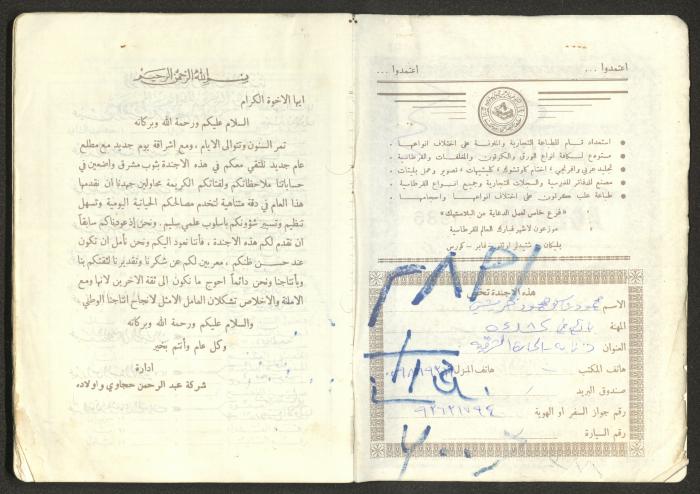 بسم الله الرحمن الرحيم
ايها الاخوة الكرام
السلام عليكم ورحمة الله وبركاته
تمر السنون وتتوالى الايام ، ومع اشراقة يوم جديد مع مطلع
عام جديد نلتقي معكم في هذه الاجندة بثوب مشرق واضعين في
حساباتنا ملاحظاتكم ولفتاتكم الكريمة محاولين جهدنا ان نقدمها
هذا العام في دقة متناهية لتخدم مصالحكم الحياتية اليومية وتسهل
تنظيم وتسيير شؤونكم باسلوب علمي سليم . ونحن إذ عودناكم سابقاً
ان نقدم لكم هذه الاجندة ، فأننا نعود اليكم ونحن نأمل ان نكون
عند حسن ظنكم ، معربين لكم عن شكرنا وتقديرنا لثقتكم بنا
وبأنتاجنا ونحن دائماً احوج ما نكون الى ثقة الاخرين لانها ومع
الامانة والاخلاص تشكلان العامل الامثل لانجاح انتاجنا الوطني .
والسلام عليكم ورحمة الله وبركاته
وكل عام وأنتم بخير
ادارة
شركة عبد الرحمن حجاوي واولاده
اعتمدوا ... اعتمدوا ...
استعداد تام للطباعة التجارية والملونة على اختلاف انواعها
مستودع لكافة انواع الورق والكرتون والمغلفات والقرطاسية
تجليد عربي وافرنجي ، اختام كاوتشوك ، كليشيهات ، تصوير وعمل بليتات
مصنع للدفاتر المدرسية والسجلات التجارية وجميع انواع القرطاسية
صناعة علب كرتون على اختلاف انواعها واحجامها
"فرع خاص لعمل الدعاية من البلاستيك"
موزعون لاشهر ماركات العالم للقرطاسية
بليكان - شتيدلر
هذه الاجندة تخص
الاسم محمود
المهنة
العنوان
هاتف المكتب هاتف المنزل
صندوق البريد
رقم جواز السفر او الهوية ٩٢٦٢١٧٩٤
رقم السيارة